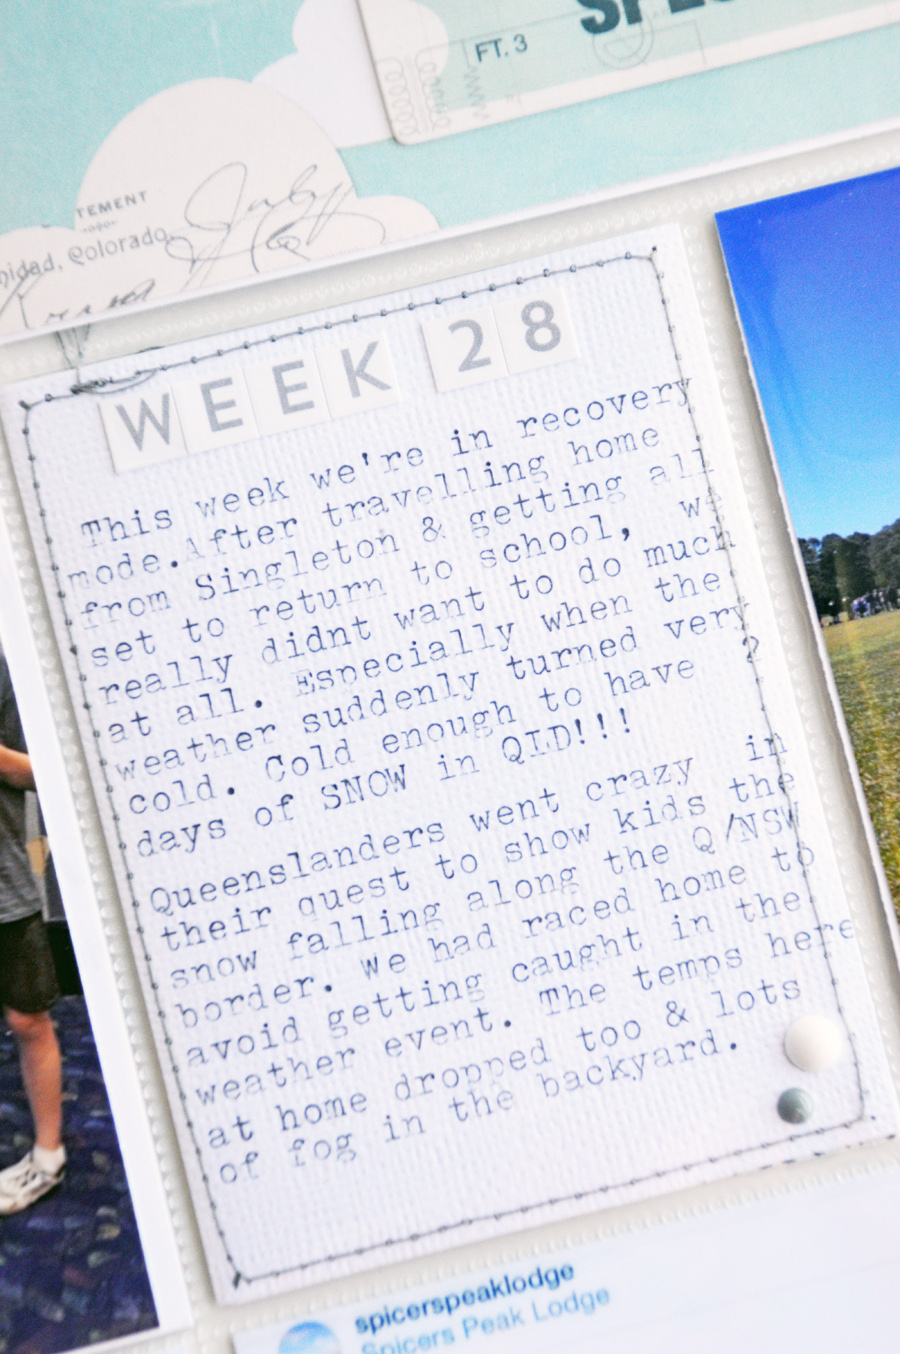 FT. 3
TEMENT
nidad, Colorado,
July
WEEK 28
This week we're in recovery
mode.After travelling home
from Singleton & getting all
set to return to school, we
really didnt want to do much
at all. Especially when the
weather suddenly turned very
cold. Cold enough to have 2
days of SNOW in QLD!!!
Queenslanders went crazy in
their quest to show kids the
snow falling along the Q/NSW
border. We had raced home to
avoid getting caught in the
weather event. The temps here
at home dropped too & lots
of fog in the backyard.
spicerspeaklodge
Spicers Peak Lodge